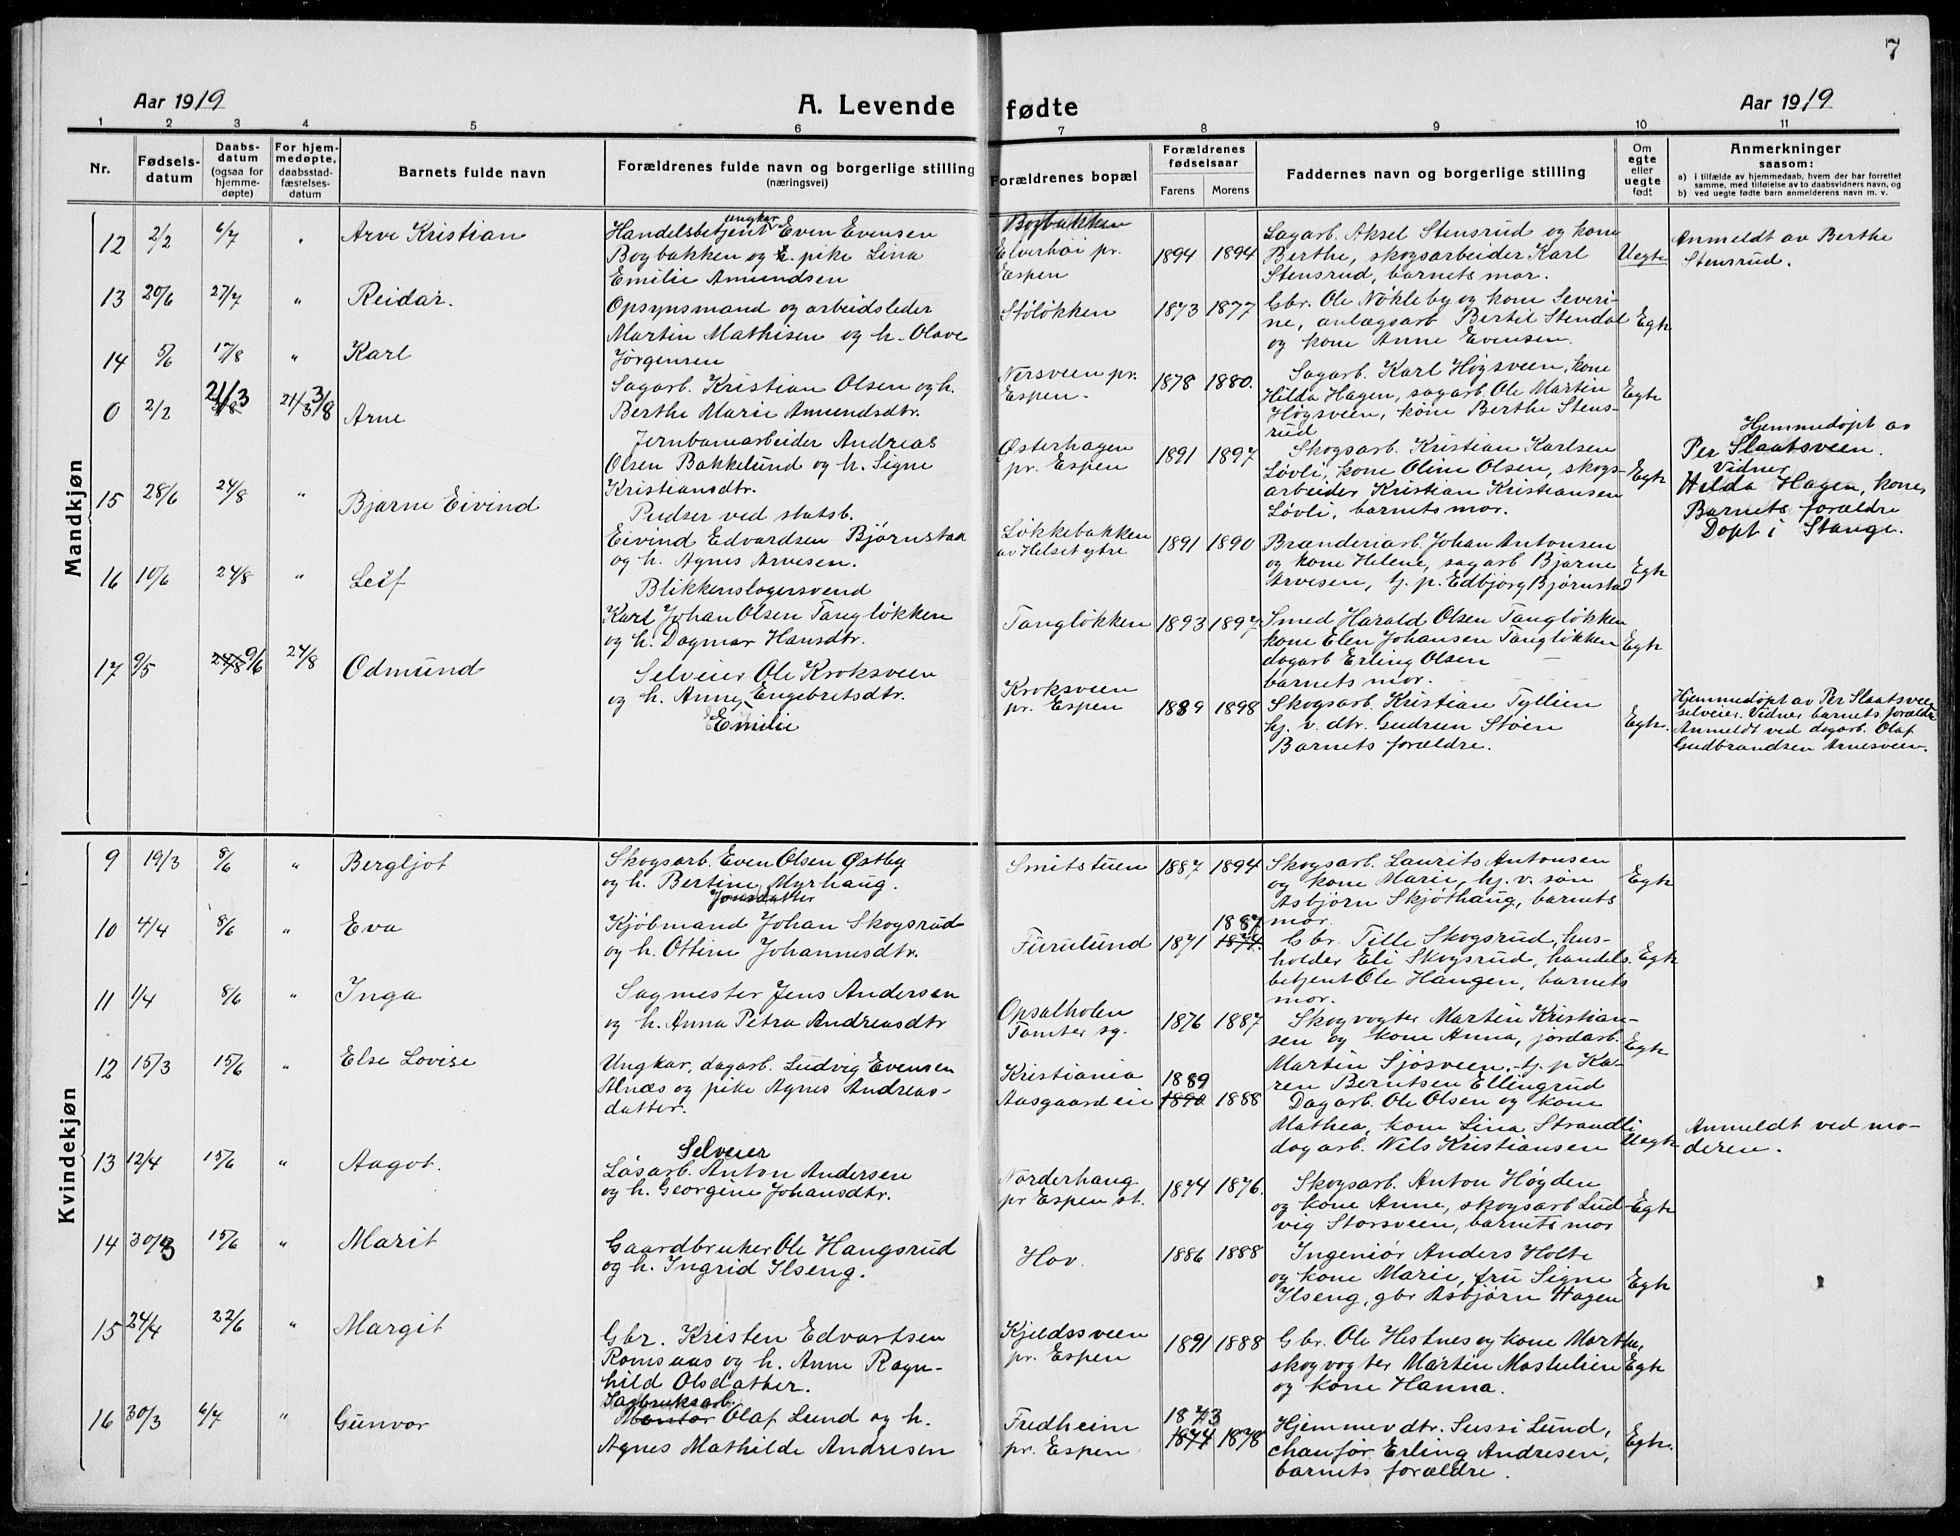 7
Aar 1919
A. Levende fødte
Aar 1919
1 2 3 4 5 6 7 8 9 10 11
Nr.
Fødsels-
datum
Daabs-
datum
(ogsaa for
hjemme-
døpte)
For hjem-
medøpte,
daabsstad-
fæstelses-
datum
Barnets fulde navn
Forældrenes fulde navn og borgerlige stilling
(næringsvei)
Forældrenes bopæl
Forældrenes
fødselsaar
Farens Morens
Faddernes navn og borgerlige stilling
Om
egte
eller
uegte
født
Anmerkninger
saasom:
a) i tilfælde av hjemmedaab, hvem der har forrettet
samme, med tilføielse av to daabsvidners navn, og
b) ved uegte født barn anmelderens navn m. v.
Mandkjøn
12 2/2 6/7 " Arve Kristian
ungkar
Handelsbetjent Even Evensen
Bogbakken og h. pike Lina
Emilie Amundsen
Bogbakken
Elverhøi pr.
Espen
1894 1894
Sagarb. Aksel Stensrud og kone
Berthe, skogsarbeider Karl
Stensrud, barnets mor.
Uegte
Anmeldt av Berthe
Stensrud.
13 20/6 27/7 " Reidar.
Opsynsmand og arbeidsleder
Martin Mathisen og h. Olave
Jørgensen
Støløkken
1873 1877
Gbr. Ole Nøkleby og kone Severi-
ne, anlægsarb Bertil Stendal
og kone Anne Evensen.
Egte
14 5/6 17/8 " Karl
Sagarb. Kristian Olsen og h.
Berthe Marie Amundsdtr.
Nersveen pr.
Espen.
1878 1880.
Sagarb. Karl Høgsveen, kone
Hilda Hagen, sagarb. Ole Martin
Høgsveen, kone Berthe Stens-
rud
Egte
0 2/2 21/3 3/8 21/3 3/8 Arne
Jernbanearbeider Andreas
Olsen Bakkelund og h. Signe
Kristiansdtr.
Østerhagen
pr. Espen
1891 1897
Skogsarb. Kristian Karlsen
Løvli, kone Oline Olsen, skogs-
arbeider Kristian Kristiansen
Løvli, barnets mor.
Egte
Hjemmedøpt av
Per Slaatsveen.
Vidner
Hilda Hagen, kone,
Barnets forældre
Døpt i Stange.
15 28/6 24/8 " Bjarne Eivind
Pudser ved statsb.
Eivind Edvardsen Bjørnstad
og h. Agnes Arvesen.
Løkkebakken
av Helset ytre
1891 1890
Brænderiarb. Johan Antonsen
og kone Helene, sagarb Bjarne
Arvesen, tj. p. Edbjørg Bjørnstad
Egte
16 10/6 24/8 " Leif
Blikkenslagersvend
Karl Johan Olsen Tangløkken
og h. Dagmar Hansdtr.
Tangløkken
1893 1897
Smed Harald Olsen Tangløkken
kone Elen Johansen Tangløkken
dagarb Erling Olsen
barnets mor.
Egte
17 9/5 24/8 9/6 24/8 Odmund
Selveier Ole Kroksveen
og h. Anne Engebretsdtr.
Emilie
Kroksveen
pr. Espen
1889 1898
Skogsarb. Kristian Tyllien
hj. v. dtr. Gudrun Støen
Barnets forældre.
Egte.
Hjemmedøpt av Per Slaatsveen
selveier. Vidner barnets forældre
Anmeldt ved dagarb. Olaf
Gudbrandsen Arnesveen.
Kvindekjøn
9 19/3 8/6 " Bergljot
Skogsarb. Even Olsen Østby
og h. Bertine Myrhaug.
Jonsdatter
Smitstuen
1887 1894
Skogsarb. Laurits Antonsen
og kone Marie, hj. v. søn
Asbjørn Skjøthaug, barnets
mor.
Egte
10 4/4 8/6 " Eva
Kjøbmand Johan Skogsrud
og h. Ottine Johannesdtr.
Furulund
1887
1871 1874.
Gbr. Tille Skogsrud, hus-
holder Eli Skogsrud, handels
betjent Ole Haugen, barnets
mor.
Egte
11 1/4 8/6 " Inga
Sagmester Jens Andersen
og h. Anna Petra Andreasdtr
Opsalholen
Tomter sg.
1876 1887
Skogvogter Martin Kristian-
sen og kone Anna, jordarb.
Martin Sjøsveen, tj. p Ka-
ren Berntsen Ellingrud
Egte
12 15/3 15/6 " Else Lovise
Ungkar, dagarb. Ludvig Evensen
Alnæs og pike Agnes Andreas-
datter.
Kristiania
Aasgaardeie
1889
1890 1888
Dagarb. Ole Olsen og kone
Mathea, kone Lina Strandli
dagarb. Nils Kristiansen
Uegte
Anmeldt ved mo-
deren.
13 12/4 15/6 " Aagot.
Selveier
Løsarb. Anton Andersen
og h. Georgine Johansdtr.
Norderhaug
pr Espen st.
1874 1876.
Skogsarb. Anton Høgden
og kone Anne, skogsarb Lud-
vig Storsveen, barnets mor
Egte
14 30/3 15/6 " Marit
Gaardbruker Ole Haugsrud
og h. Ingrid Ilseng.
Hov.
1886 1888
Ingeniør Anders Holte
og kone Marie, fru Signe
Ilseng, gbr Asbjørn Hagen
Egte
15 24/4 22/6 " Margit
Gbr. Kristen Edvartsen
Romsaas og h. Anne Ragn-
hild Olsdatter.
Kjeldssveen
pr. Espen
1891 1888
Gbr. Ole Hestnes og kone Marthe,
skogvogter Martin Mostulien
og kone Hanna.
Egte
16 30/3 6/7 " Gunvor
Sagbruksarb.
Montør Olaf Lund og h.
Agnes Mathilde Andresen
Fredheim
pr. Espen
1873
1874 1878
Hjemmev dtr. Sussi Lund,
chauffør Erling Andresen,
barnets forældre.
Egte.